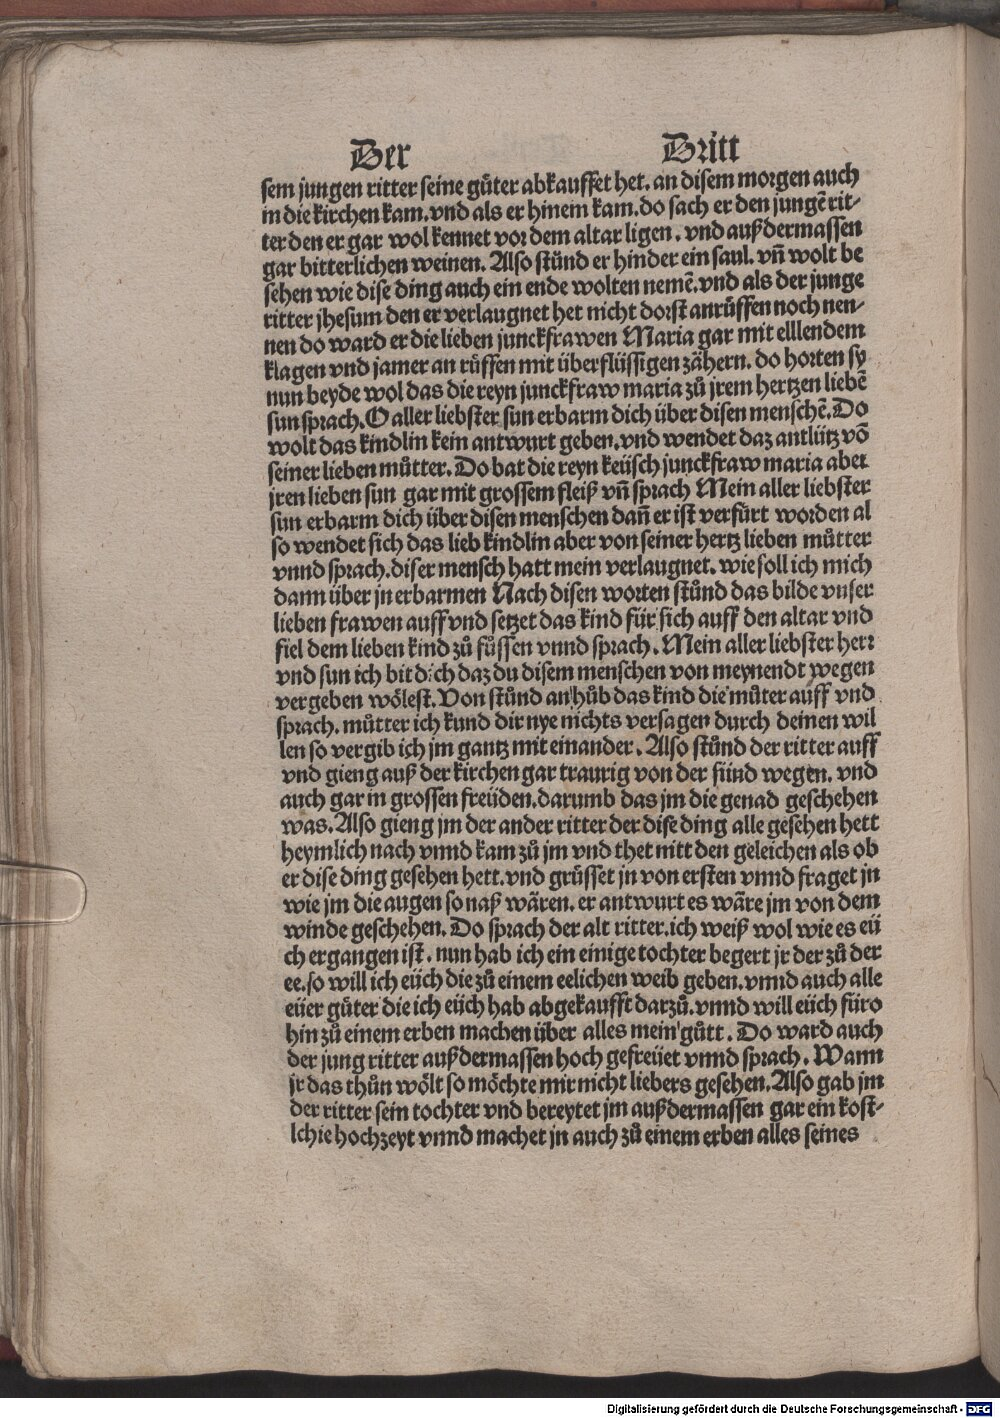 Der Dritt
sem jungen ritter seine gůter abkauffet het. an disem morgen auch
in die kirchen kam. vnd als er hinein kam. do sach er den jungē rit-
ter den er gar wol kennet vor dem altar ligen. vnd außdermassen
gar bitterlichen weinen. Also stůnd er hinder ein saul. vn̄ wolt be
sehen wie dise ding auch ein ende wolten nemē. vnd als der junge
ritter jhesum den er verlaugnet het nicht dorst anrůffen noch nen-
nen do ward er die lieben junckfrawen Maria gar mit elllendem
klagen vnd jamer an růffen mit überflüssigen zähern. do horten sy
nun beyde wol das die reyn junckfraw maria zů jrem hertzen liebē
sun sprach. O aller liebster sun erbarm dich über disen menschē. Do
wolt das kindlin kein antwurt geben. vnd wendet daz antlütz vō
seiner lieben můtter. Do bat die reyn keüsch junckfraw maria aber
jren lieben sun gar mit grossem fleiß vn̄ sprach Mein aller liebster
sun erbarm dich über disen menschen dan̄ er ist verfürt worden al
so wendet sich das lieb kindlin aber von seiner hertz lieben můtter
vnnd sprach. diser mensch hatt mein verlaugnet. wie soll ich mich
dann über jn erbarmen Nach disen worten stůnd das bilde vnser
lieben frawen auff vnd setzet das kind für sich auff den altar vnd
fiel dem lieben kind zů fůssen vnnd sprach. Mein aller liebster herr
vnd sun ich bit dich daz du disem menschen von meynendt wegen
vergeben wölest. Von stůnd an hůb das kind die můter auff vnd
sprach. můtter ich kund dir nye nichts versagen durch deinen wil
len so vergib ich jm gantz mit einander. Also stůnd der ritter auff
vnd gieng auß der kirchen gar traurig von der sünd wegen. vnd
auch gar in grossen freüden. darumb das jm die genad geschehen
was. Also gieng jm der ander ritter der dise ding alle gesehen hett
heymlich nach vnnd kam zů jm vnd thet nitt den geleichen als ob
er dise ding gesehen hett. vnd grüsset jn von ersten vnnd fraget jn
wie jm die augen so naß wären. er antwurt es wäre jm von dem
winde geschehen. Do sprach der alt ritter. ich weiß wol wie es eü
ch ergangen ist. nun hab ich ein einige tochter begert jr der zů der
ee. so will ich eüch die zů einem eelichen weib geben. vnnd auch alle
eüer güter die ich eüch hab abgekaufft darzů. vnnd will eüch füro
hin zů einem erben machen über alles mein gütt. Do ward auch
der jung ritter außdermassen hoch gefreüet vnnd sprach. Wann
jr das thůn wölt so möchte mir nicht liebers gesehen. Also gab jm
der ritter sein tochter vnd bereytet jm außdermassen gar ein kost-
lchie hochzeyt vnnd machet jn auch zů einem erben alles seines
Digitalisierung gefördert durch die Deutsche Forschungsgemeinschaft - DFG